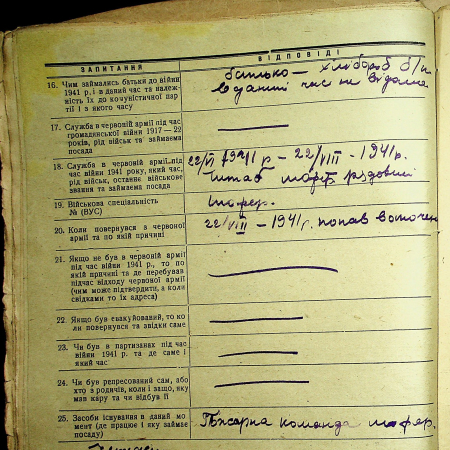 ЗАПИТАННЯ
ВІДПОВІДІ
16. Чим займались батьки до війни
1941 р. і в даний час та належ-
ність їх до комуністичної пар-
тії і з якого часу
батько — хлібороб б/п
в даний час не відома
17. Служба в червоній армії під час
громадянської війни 1917—22
років, рід військ та займаема
посада
18. Служба в червоній армії під
час війни 1941 року, який час,
рід військ, останне військове
звання та займаема посада
22/VI 1941 р – 22/VIII – 1941р.
штаб рядовий
19. Військова спеціальність
№ (ВУС)
шофер.
20. Коли повернувся з червоної
армії та по якій причині
22/VIII – 1941г. попав
21. Якщо не був в червоній армії
під час війни 1941 р., то по
якій причині та де перебував
підчас відходу червоної армії
(чим може підтвердити, а коли
свідками то їх адреса)
22. Якщо був евакуйований, то ко-
ли повернувся та звідки саме
23. Чи був в партизанах під час
війни 1941 р. та де саме і
який час
24. Чи був репресований сам, або
хто з родичів, коли і защо, яку
мав кару та чи відбув її
25. Засоби існування в даний мо-
мент (де працює і яку займає
посаду)
Пожарна команда шофер.